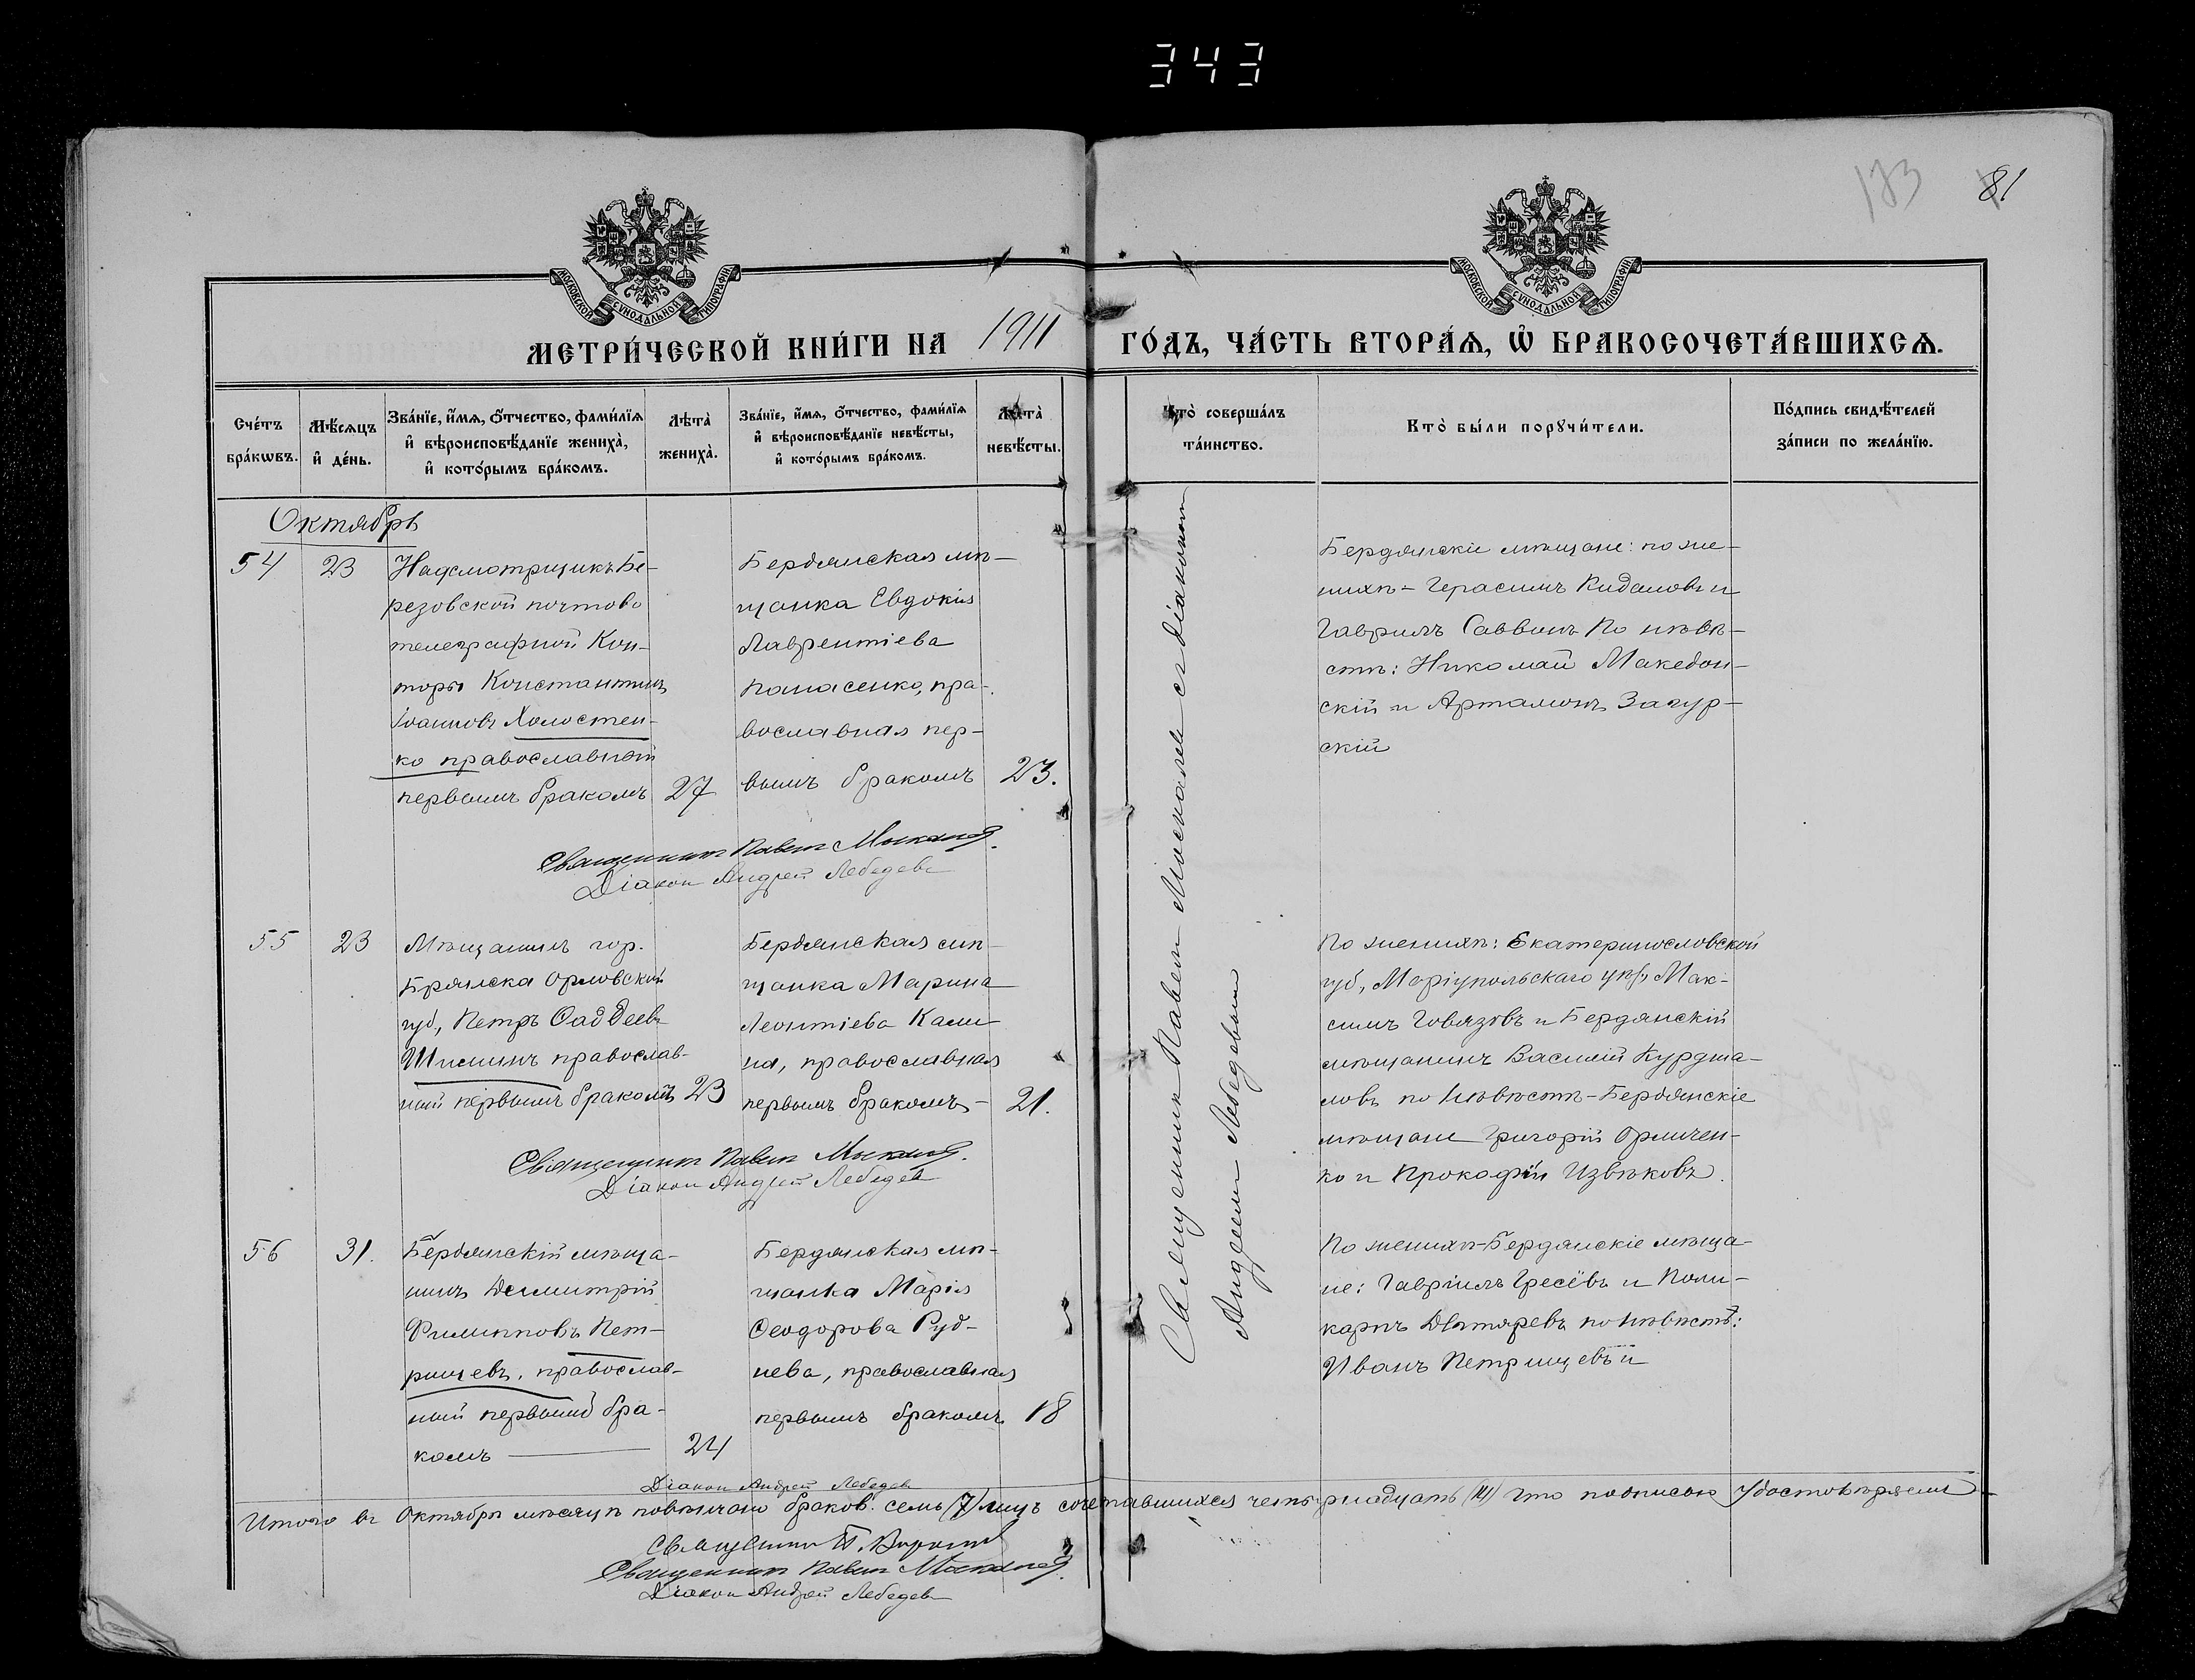 343
173
81
МОСКОВСКОЙ СѴНОДАЛЬНОЙ ТИПОГРАФІИ
МОСКОВСКОЙ СѴНОДАЛЬНОЙ ТИПОГРАФІИ
МЕТРИ́ЧЕСКОЙ КНИ́ГИ НА 1911
ГО́ДЪ, ЧА́СТЬ ВТОРА́Ѧ, Ѽ БРАКОСОЧЕТА́ВШИХСѦ.
Сче́тъ
бра́кѡвъ.
Мѣ́сѧцъ
и҆ де́нь.
Зва́нїе, и҆́мѧ, ѻ҆́тчество, фами́лїѧ
и҆ вѣроисповѣ́данїе жениха̀,
и҆ кото́рымъ бра́комъ.
Лѣта̀
жениха̀.
Зва́нїе, и҆́мѧ, ѻ҆́тчество, фами́лїѧ
и҆ вѣроисповѣ́данїе невѣ́сты,
и҆ кото́рымъ бра́комъ.
Лѣта̀
невѣ́сты.
Кто̀ соверша́лъ
та́инство.
Кто̀ бы́ли порꙋчи́тели.
По́дпись свидѣ́телей
за́писи по жела́нїю.
Октябрь
54
23
Надсмотрщикъ Бе-
резовской почтово
телеграфной Кон-
торы Константинъ
Іоанновъ Холостен-
ко православный
первымъ бракомъ
27
Бердянская мѣ-
щанка Евдокія
Лаврентіева
Панасенко, пра-
вославная пер-
вымъ бракомъ
23.
Бердянскіе мѣщане: по же-
нихѣ - Герасимъ Кидаловъ и
Гавріилъ Саввинъ По невѣ-
стѣ: Николай Македон-
скій и Артамонъ Загур-
скій
Священникъ Павелъ
Діаконъ Андрей Лебедевъ
55
23
Мѣщанинъ гор.
Брянска Орловской
губ, Петръ Фаддеевъ
Шишинъ православ-
ный первымъ бракомъ
23
Бердянская мѣ-
щанка Марина
Леонтіева Кали-
на, православная
первымъ бракомъ -
21.
По женихѣ: Екатеринославской
губ, Маріупольскаго у. Мак-
симъ Говязовъ и Бердянскій
мѣщанинъ Василій Курдша-
ловъ по невѣстѣ - Бердянскіе
мѣщане Григорій Орличен-
ко и Прокофій Извѣковъ.
Священникъ Павелъ
Діаконъ Андрей Лебедевъ
56
31.
Бердянскій мѣща-
нинъ Димитрій
Филипповъ Пет-
рищевъ, православ-
ный первымъ бра-
комъ
24
Бердянская мѣ-
щанка Марія
Ѳеодорова Руд-
нева, православная
первымъ бракомъ
18
По женихѣ - Бердянскіе мѣща-
не: Гавріилъ Гресёвъ и Поли-
карпъ Дѣгтяревъ по невѣстѣ:
Иванъ Петрищевъ и
Священникъ Павелъ Москалевъ съ діакономъ
Андреемъ Лебедевымъ
Діаконъ Андрей Лебедевъ
Итого въ Октябрѣ мѣсяцѣ повѣнчано браковъ семь (7) лицъ сочетавшихся четырнадцать (14) что подписью удостовѣряемъ
Священникъ П.
Священникъ Павелъ
Діаконъ Андрей Лебедевъ